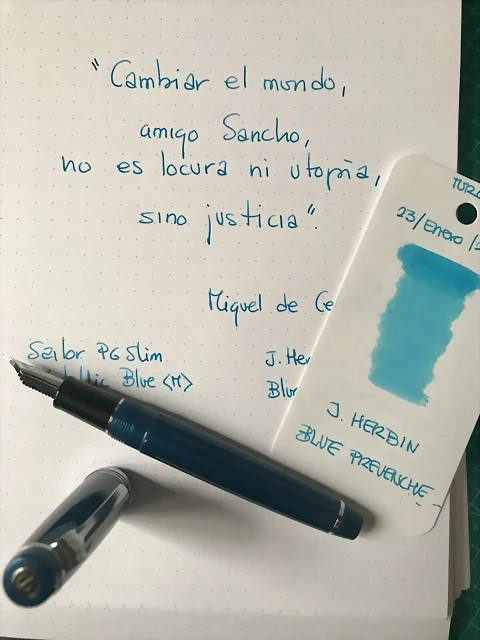 "Cambiar el mondo,
amigo Sancho,
no es locura ni utopia,
sino justicia".
Miguel de Ce
Sailor PG Slim
Blue <M>
J. Her
Blue
23/Enero/2
J. HERBIN
BLUE PREVENCHE